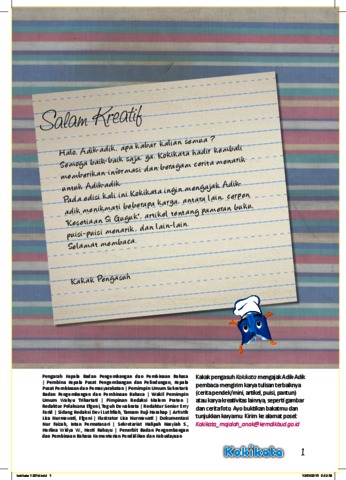 Salam Kreatif
Halo, Adik-adik, apa kabar kalian semua ?
Semoga baik-baik saja, ya. Kokikata hadir kembali
memberikan informasi dan beragam cerita menarik
untuk Adik-adik.
Pada edisi kali ini Kokikata ingin mengajak Adik-
adik menikmati beberapa karya, antara lain, cerpen
"Kesetiaan Si Guguk", artikel tentang pameran buku,
puisi-puisi menarik, dan lain-lain.
Selamat membaca.
Kakak Pengasuh
Pengarah Kepala Badan Pengembangan dan Pembinaan Bahasa
| Pembina Kepala Pusat Pengembangan dan Pelindungan, Kepala
Pusat Pembinaan dan Pemasyarakatan | Pemimpin Umum Sekretaris
Badan Pengembangan dan Pembinaan Bahasa | Wakil Pemimpin
Umum Wahyu Trihartati | Pimpinan Redaksi Malem Praten |
Redaktur Pelaksana Efgeni, Teguh Dewabrata | Redaktur Senior Erry
Farid | Sidang Redaksi Devi Luthfiah, Tamam Ruji Harahap | Artistik
Lisa Nurmawati, Efgeni | Ilustrator Lisa Nurmawati | Dokumentasi
Nur Faizah, Intan Permatasari | Sekretariat
Herlina Widya W., Hesti Rahayu | Penerbit Badan Pengembangan
dan Pembinaan Bahasa Kementerian Pendidikan dan Kebudayaan
Kakak pengasuh Kokikata mengajak Adik-Adik
pembaca mengirim karya tulisan terbaiknya
(cerita pendek/mini, artikel, puisi, pantun)
atau karya kreativitas lainnya, seperti gambar
dan cerita foto. Ayo buktikan bakatmu dan
tunjukkan karyamu. Kirim ke alamat posel
Kokikata_majalah_anak@kemdikbud.go.id
Kokikata
1